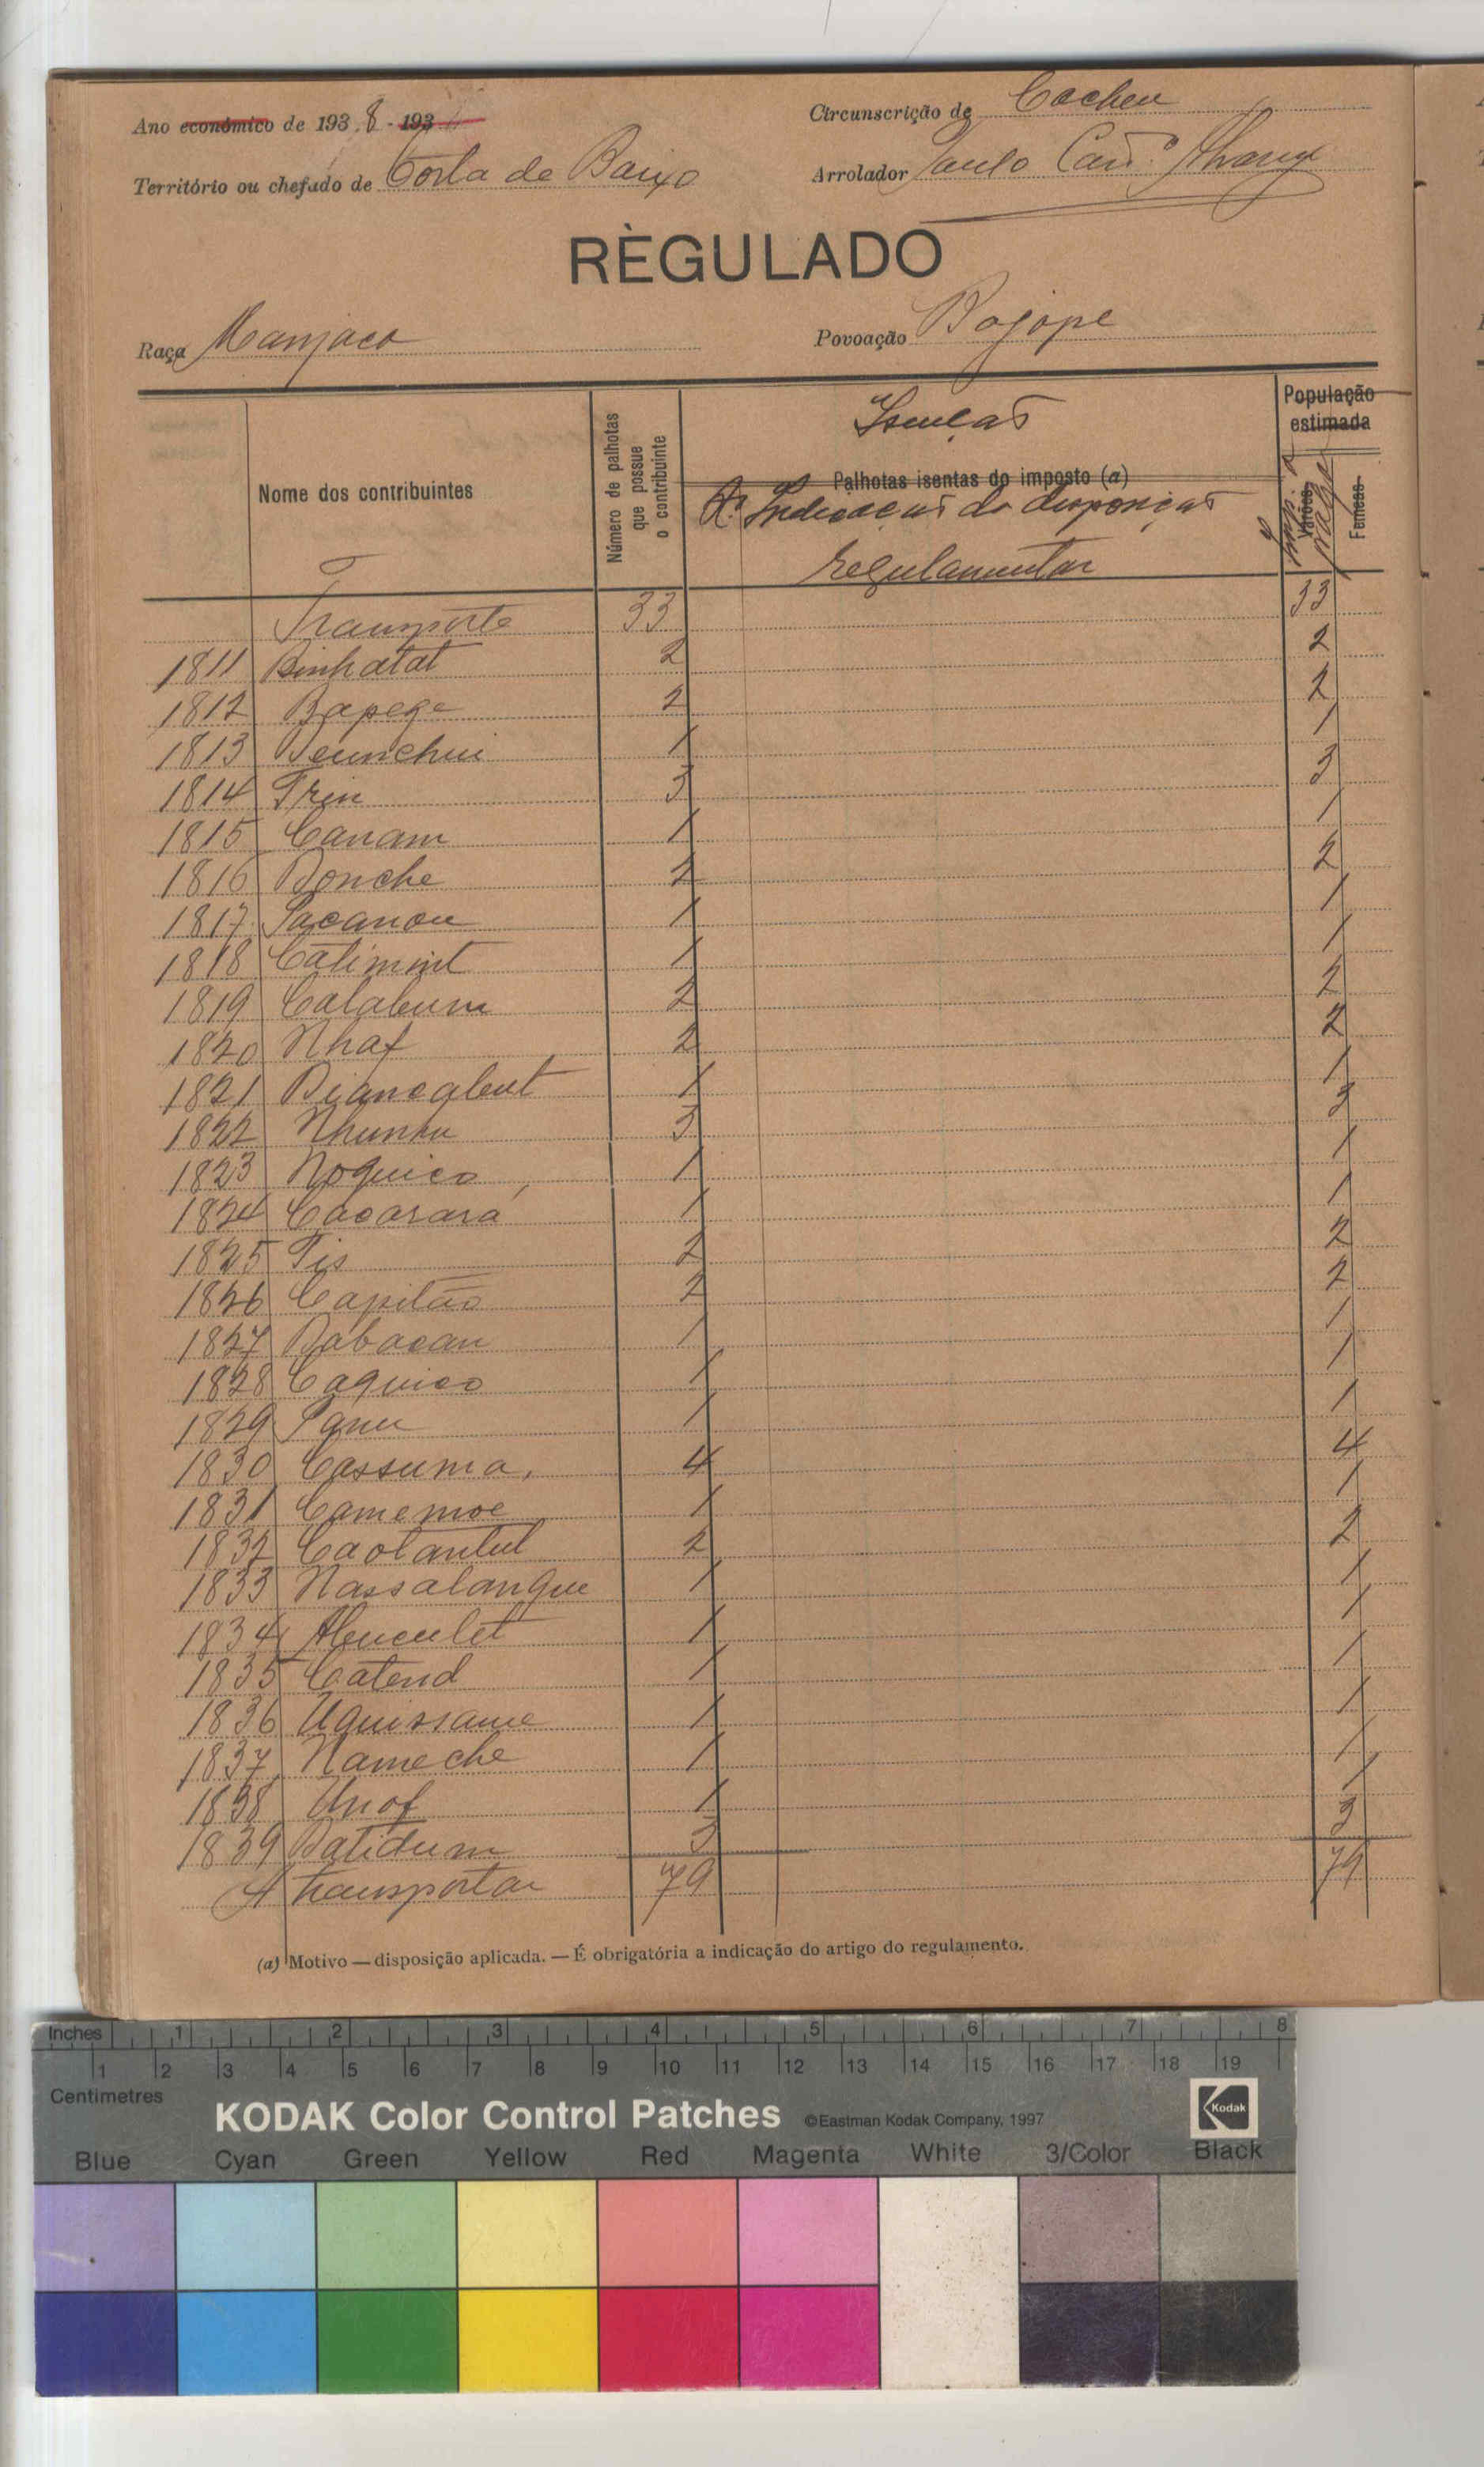 Ano económico de 1938 - 193
Circunscrição de Cacheu
Território ou chefado de Costa de Baixo
Arrolador Paulo
RÈGULADO
Raça Manjaco
Povoação Bojope
Nome dos contribuintes
Número de palhotas que possue o contribuinte
Isenças
Palhotas isentas do imposto (a)
Indicaçãs da disposiçãs
regulamentar
População estimada
Varões
Femeas
Transporte 33 33
1811 Binhatat 2 2
1812 Bapega 2 2
1813 1 1
1814 Trin 3 3
1815 Canam 1 1
1816 Bonche 2 2
1817 Pacanou 1 1
1818 Catimint 1 1
1819 Calabum 2 2
1820 Nhaf 2 2
1821 Biancabut 1 1
1822 Nhunhu 3 3
1823 Noquico 1 1
1824 Cacarara 1 1
1825 Tis 2 2
1826 Capitão 2 2
1827 Babacan 1 1
1828 Caquico 1 1
1829 1 1
1830 Cassuma 4 4
1831 Camemoe 1 1
1832 Caotantul 2 2
1833 Nassalangue 1 1
1834 1 1
1835 Catend 1 1
1836 Uquissame 1 1
1837 Nameche 1 1
1838 Unof 1 1
1839 Batidum 3 3
A transportar 79 79
(a) Motivo — disposição aplicada. — É obrigatória a indicação do artigo do regulamento.
Inches 1 2 3 4 5 6 7 8
1 2 3 4 5 6 7 8 9 10 11 12 13 14 15 16 17 18 19
Centimetres
KODAK Color Control Patches ©Eastman Kodak Company, 1997 Kodak
Blue Cyan Green Yellow Red Magenta White 3/Color Black